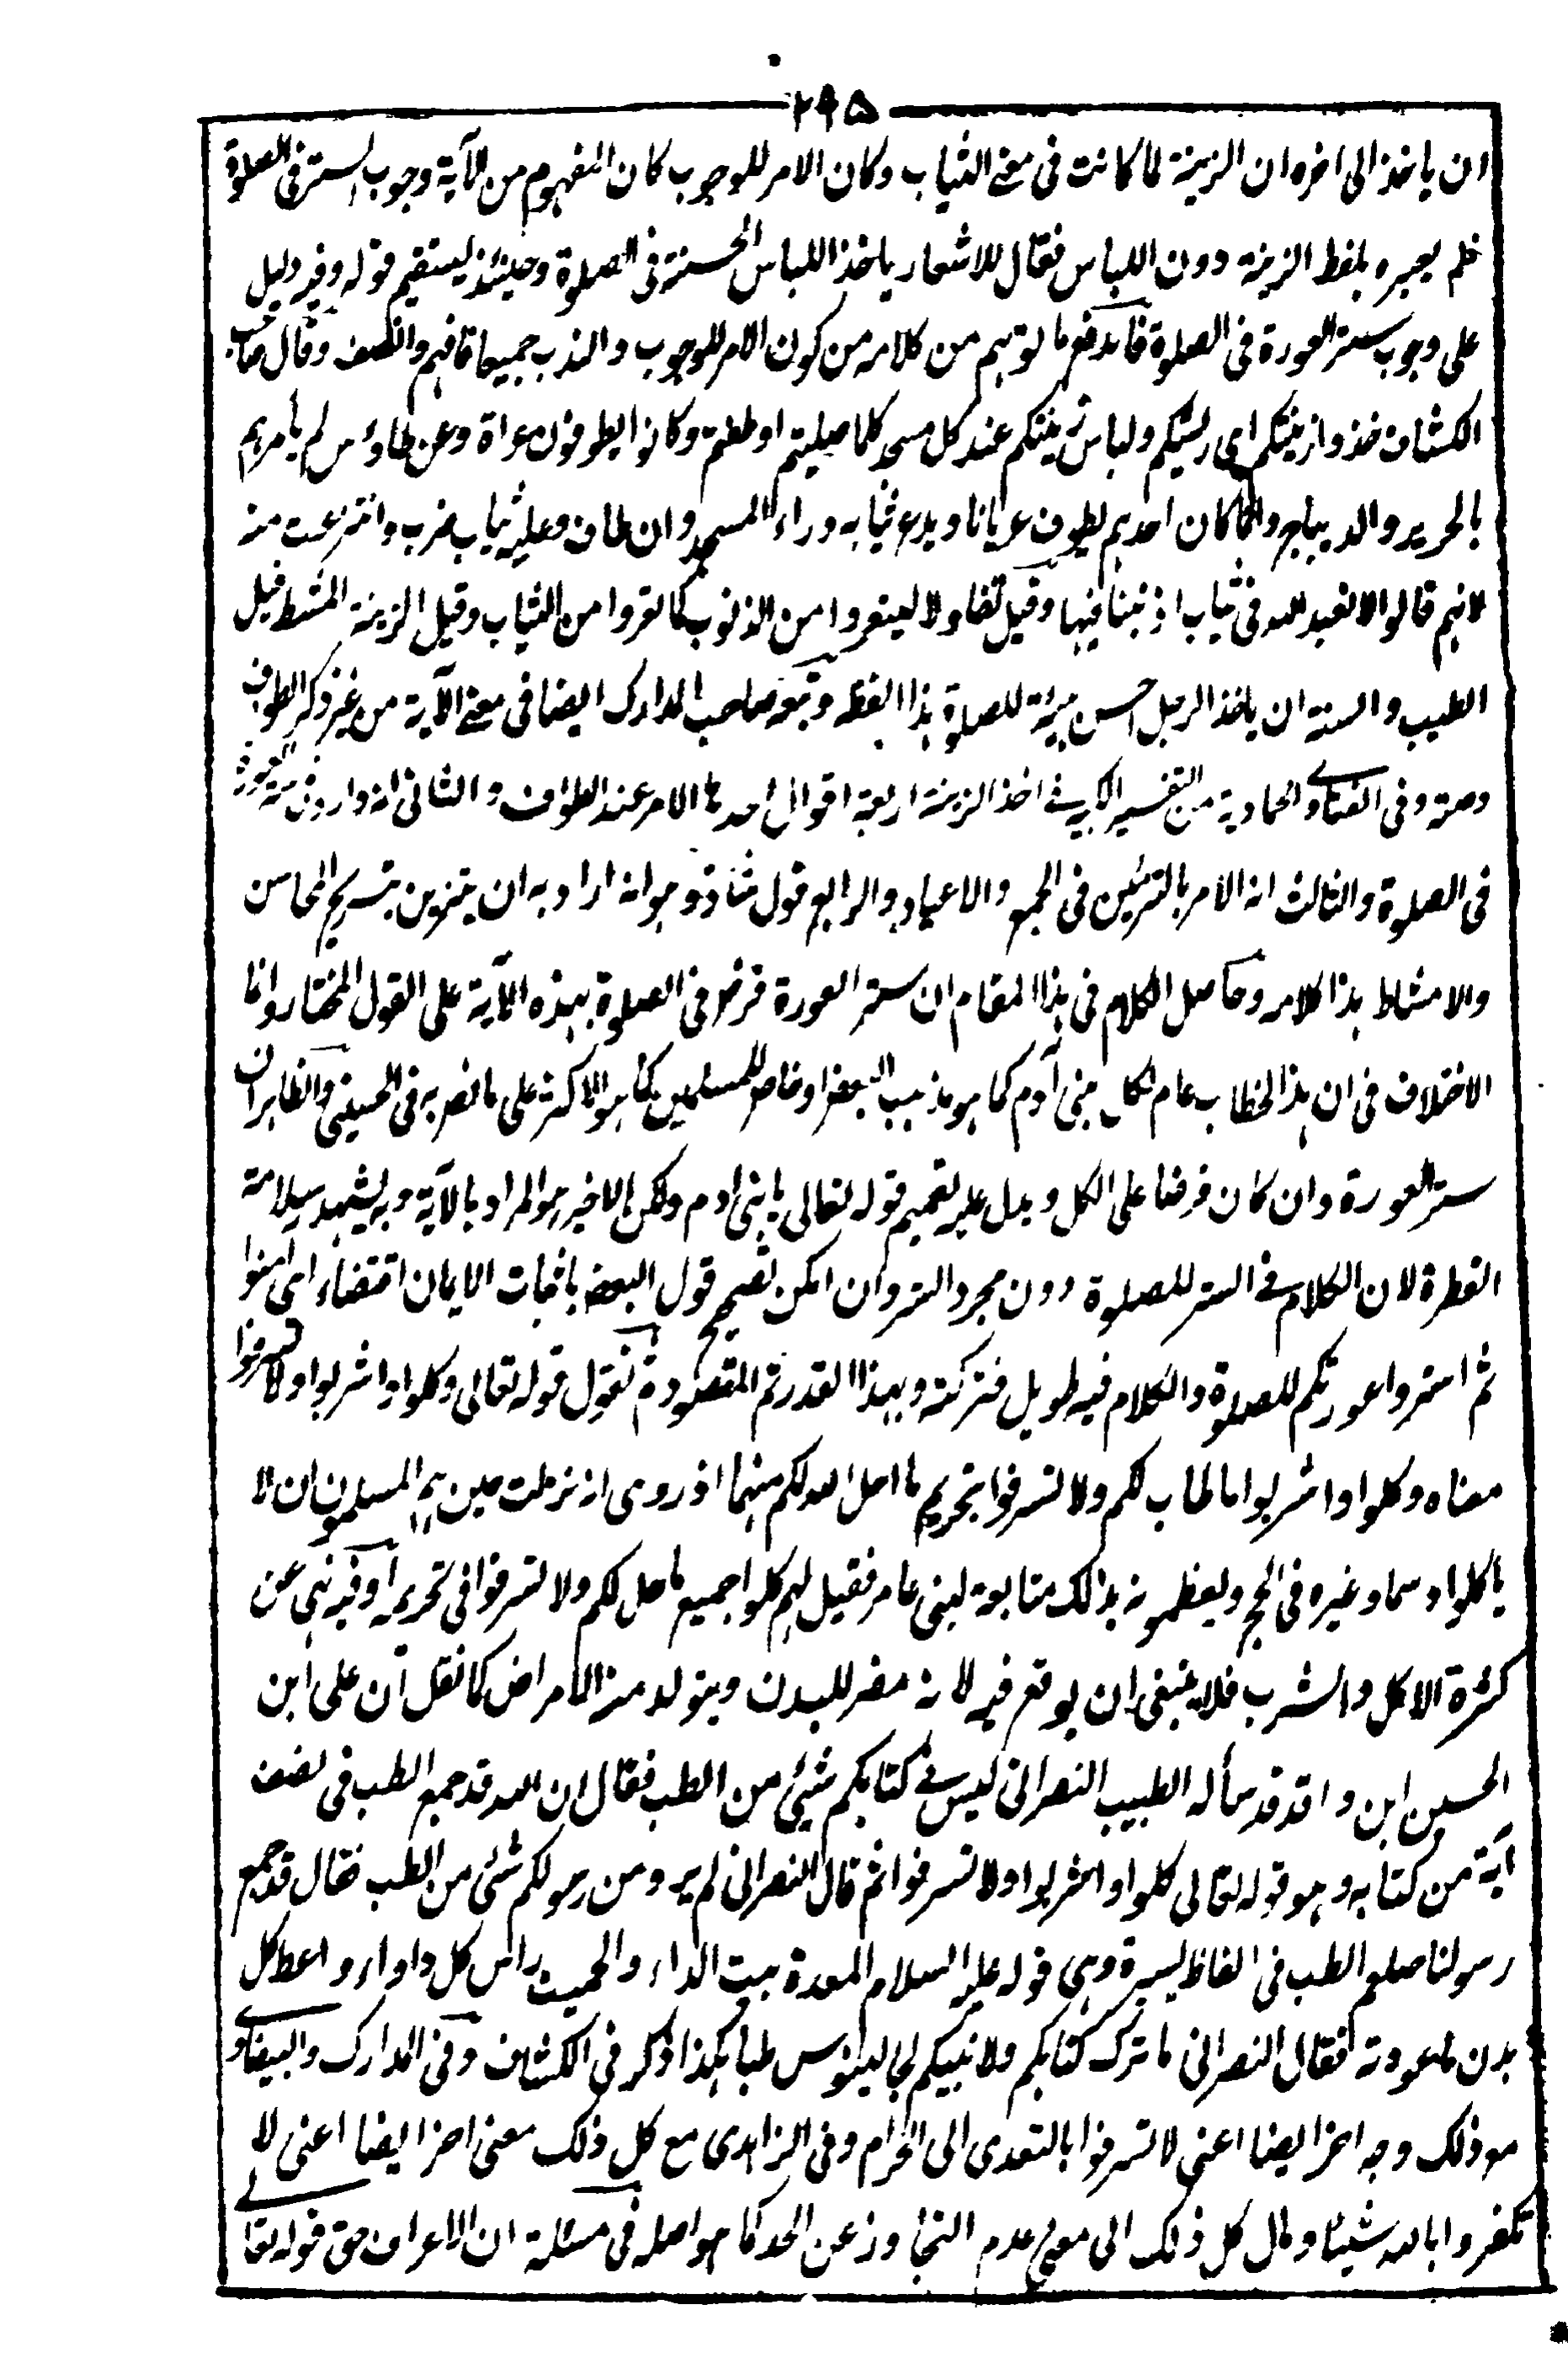 ٢٩٥
ان ياخذ الى اخره ان الزينة لما كانت فى معنے الثياب وكان الامر للوجوب كان المفهوم من الآية وجوب الستر فى الصلوة
فلم يعبره بلفظ الزينة دون اللباس فقال للاشعار ياخذ اللباس الحسنة فى الصلوة وحينئذ يستقيم قوله وفيه دليل
على وجوب ستر العورة فى الصلوة فاندفع ما توهم من كلامه من كون الامر للوجوب والندب جميعا فافهم وانصف وقال صاحب
الكشاف خذوا زينتكم اى ريشكم ولباس زينتكم عند كل مسجد كلما صليتم او طفتم وكانوا يطوفون عراة وعن طاؤس لم يأمرهم
بالحرير والديباج وانما كان احدهم يطوف عريانا ويدع ثيابه وراء المسجد وان طاف وعليه ثياب ضرب وانتزعت منه
لانهم قالوا لا نعبد الله فى ثياب اذنبنا فيها وقيل تفاولا ليتعروا من الذنوب كما تعروا من الثياب وقيل الزينة المشط وقيل
الطيب والسنة ان ياخذ الرجل احسن هيئة للصلوة هذا لفظه وتبعه صاحب المدارك ايضا فى معنے الآية من غير ذكر الطواف
وصته وفى الفتاوے الحمادية من التفسير الكبير فے اخذ الزينة اربعة اقوال احدها الامر عند الطواف والثانى انه وارد فى ستر العورة
فى الصلوة والثالث انه الامر بالتزئين فى الجمع والاعياد والرابع قول شاذ وهو انه اراد به ان يتزين بتسريح المحاسن
والامشاط هذا كلامه وحاصل الكلام فى هذا المقام ان ستر العورة فرض فى الصلوة بهذه الآية على القول المختار وانما
الاختلاف فى ان هذا الخطاب عام لكل بنى آدم كما هو مذهب البعض او خاص للمسلمين كما هو الاكثر على ما نص به فى الحسينى والظاهر ان
ستر العورة وان كان فرضا على الكل ويدل عليه تعميم قوله تعالى يا بنى ادم ولكن الاخير هو المراد بالآية وبه يشهد سلامة
الفطرة لان الكلام فے الستر للصلوة دون مجرد الستر وان امكن تصحيح قول البعض باثبات الايمان اقتضاء اى امنوا
ثم استروا عورتكم للصلوة والكلام فيه طويل فتركته وبهذا القدر تم المقصود ثم نقول قوله تعالى وكلوا واشربوا ولا تسرفوا
معناه وكلوا واشربوا ما طاب لكم ولا تسرفوا بتحريم ما احل الله لكم منهما اذ روى انه نزلت حين هم المسلمون ان لا
ياكلوا دسما وغيره فى الحج ويعظمونه بذلك متابعة لبنى عامر فقيل لهم كلوا جميع ما حل لكم ولا تسرفوا فى تحريمه او فيه نهى عن
كثرة الاكل والشرب فلا ينبغى ان يوقع فيه لانه مضر للبدن ويتولد منه الامراض كما نقل ان على ابن
الحسين ابن واقد قد سأله الطبيب النصرانى ليس فے كتابكم شيئ من الطب فقال ان الله قد جمع الطب فى نصف
آية من كتابه وهو قوله تعالى كلوا واشربوا ولا تسرفوا ثم قال النصرانى لم يرو من رسولكم شئ من الطب فقال قد جمع
رسولنا صلعم الطب فى الفاظ يسيرة وهى قوله عليه السلام المعدة بيت الداء والحمية راس كل دواء واعط كل
بدن ما عودته فقال النصرانى ما ترك كتابكم ولا نبيكم لجالينوس طبا هكذا ذكر فى الكشاف وفى المدارك والبيضاوے
مع ذلك وجه اخر ايضا اعنى لا تسرفوا بالتعدى الى الحرام وفى الزاهدى مع كل ذلك معنى اخر ايضا اعنى لا
تكفروا بالله شيئا ومال كل ذلك الى معنى عدم التجاوز عن الحد كما هو اصله فى مسئلة ان الاعراف حق قوله تعالے